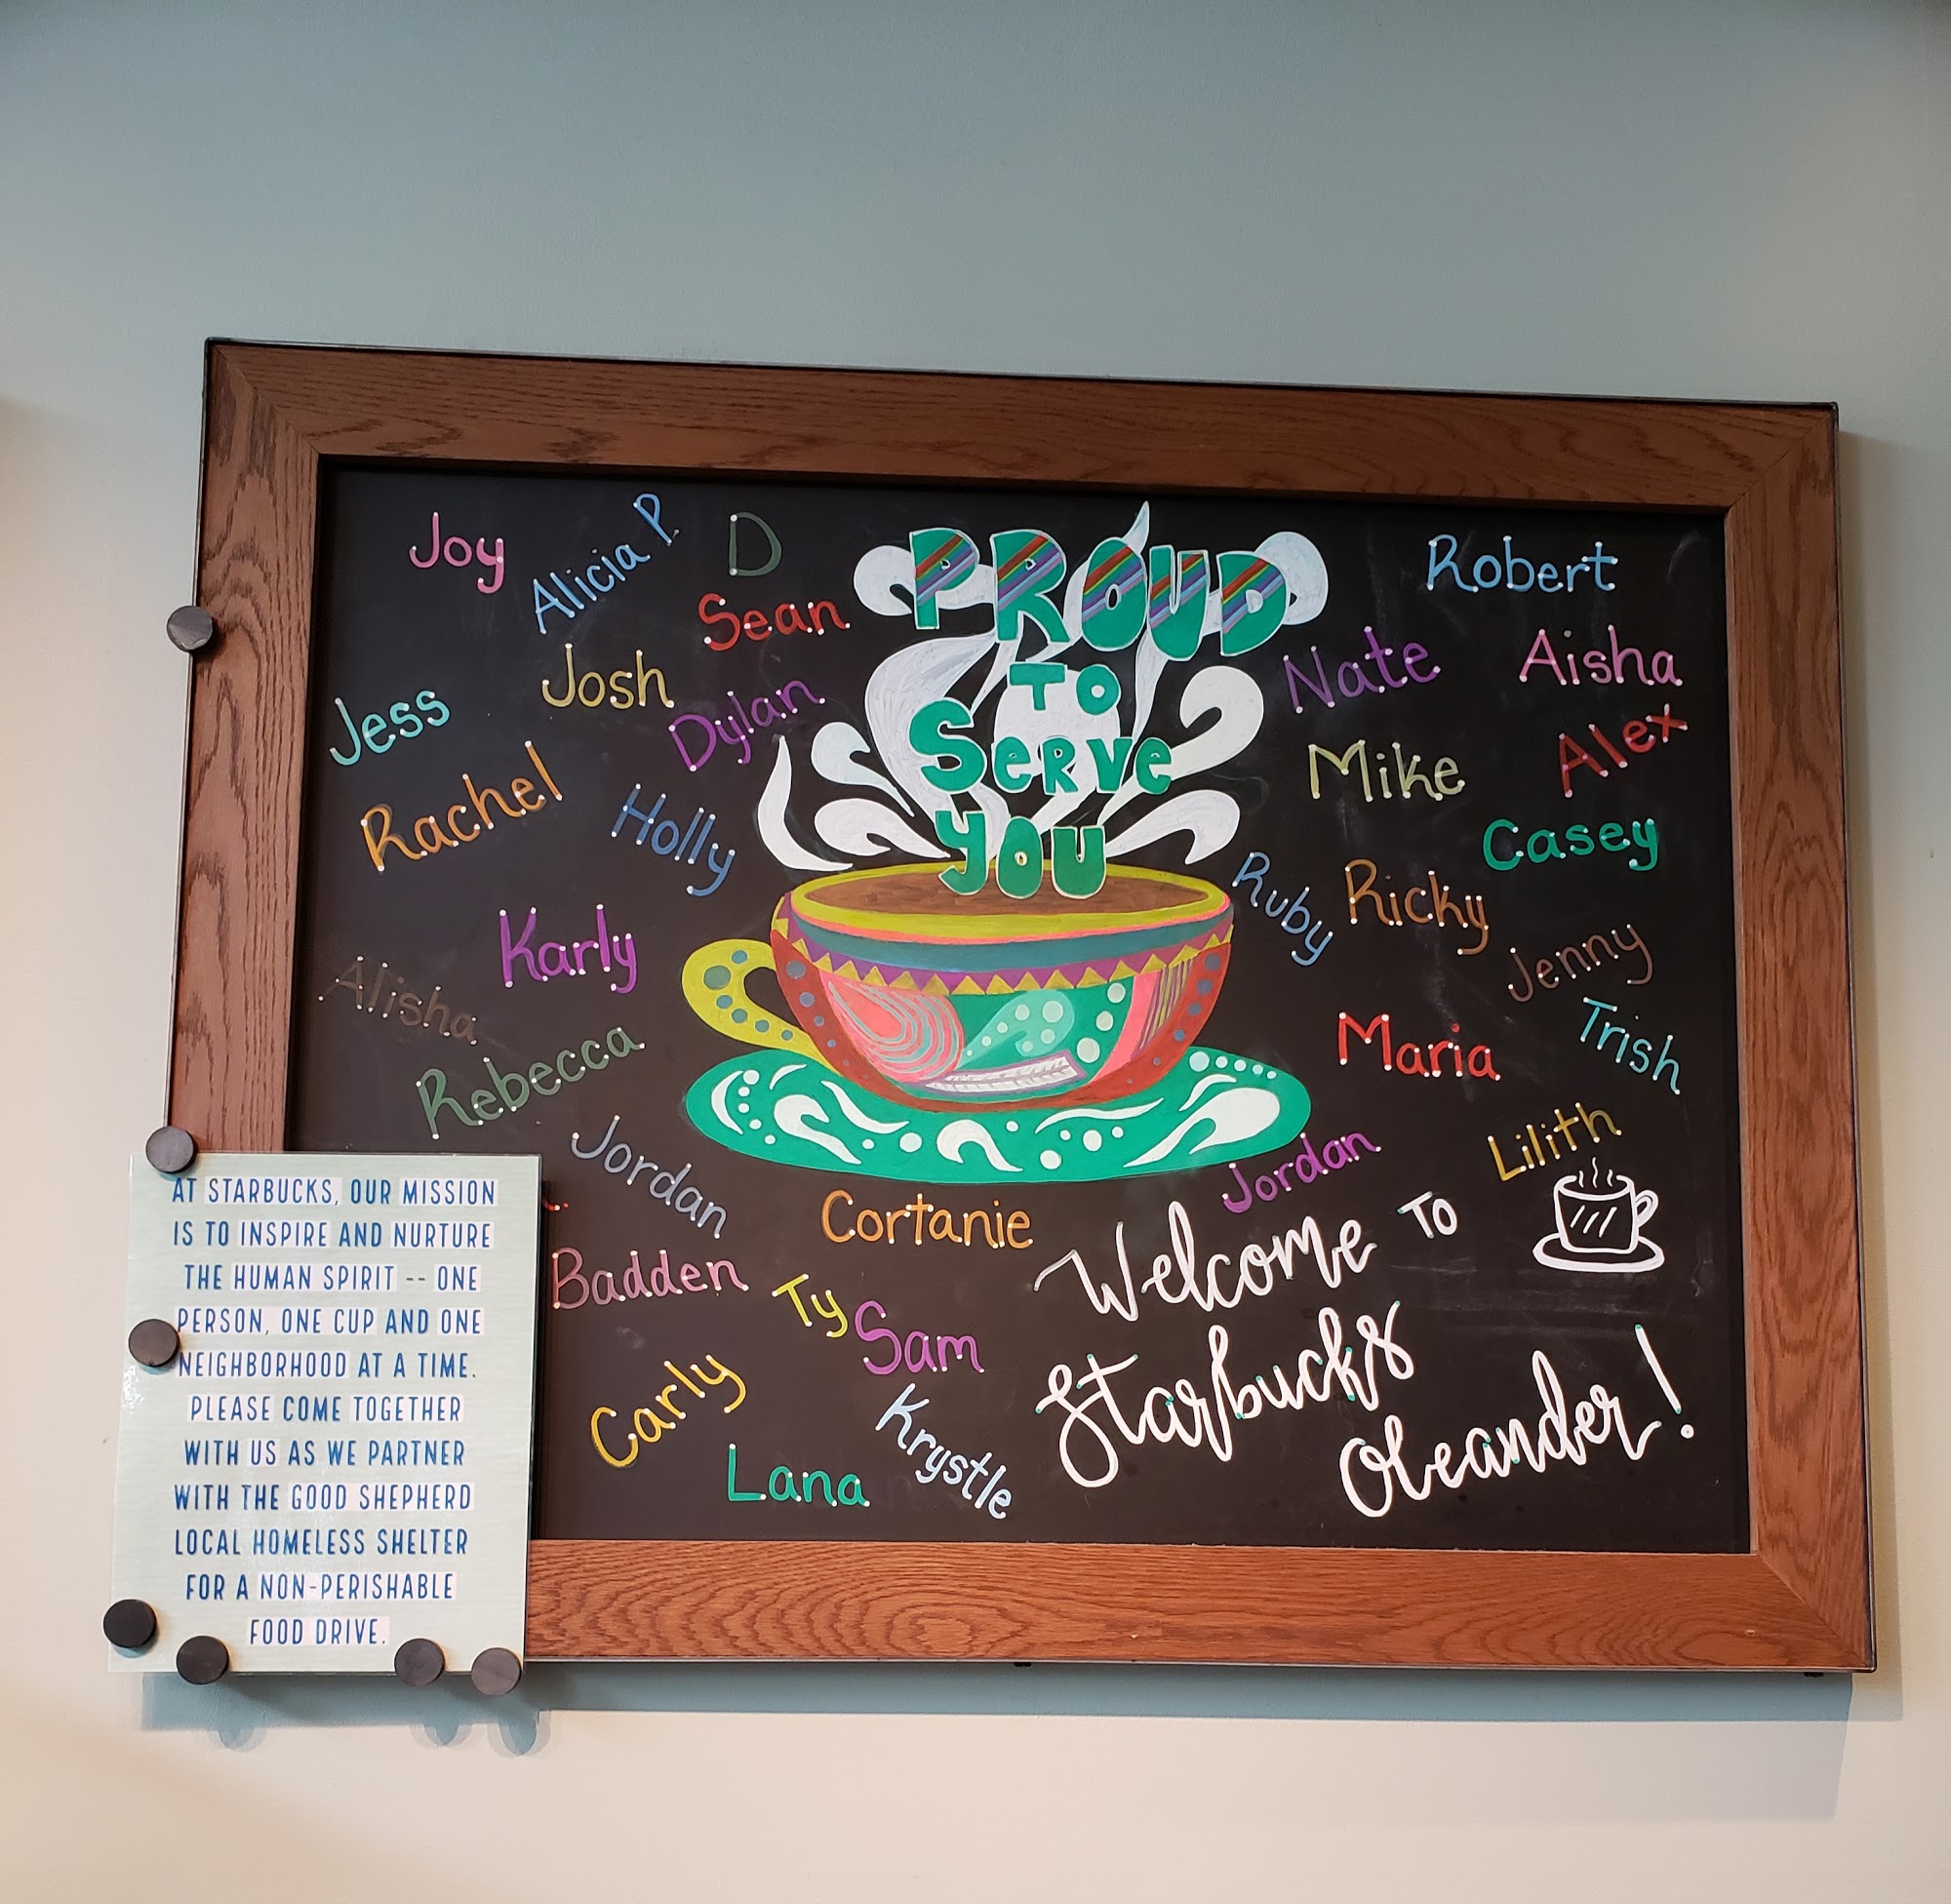 Joy
Alicia P.
D
Sean
Josh
Dylan
Jess
Rachel
Holly
Karly
Alisha
Rebecca
Jordan
PROUD
TO
SERVE
YOU
Robert
Nate
Aisha
Mike
Alex
Casey
Ruby
Ricky
Jenny
Maria
Trish
Lilith
Jordan
Cortanie
Badden
Ty
Sam
Carly
Krystle
Lana
Welcome TO
Starbucks
Oleander!
AT STARBUCKS, OUR MISSION
IS TO INSPIRE AND NURTURE
THE HUMAN SPIRIT -- ONE
PERSON, ONE CUP AND ONE
NEIGHBORHOOD AT A TIME.
PLEASE COME TOGETHER
WITH US AS WE PARTNER
WITH THE GOOD SHEPHERD
LOCAL HOMELESS SHELTER
FOR A NON-PERISHABLE
FOOD DRIVE.